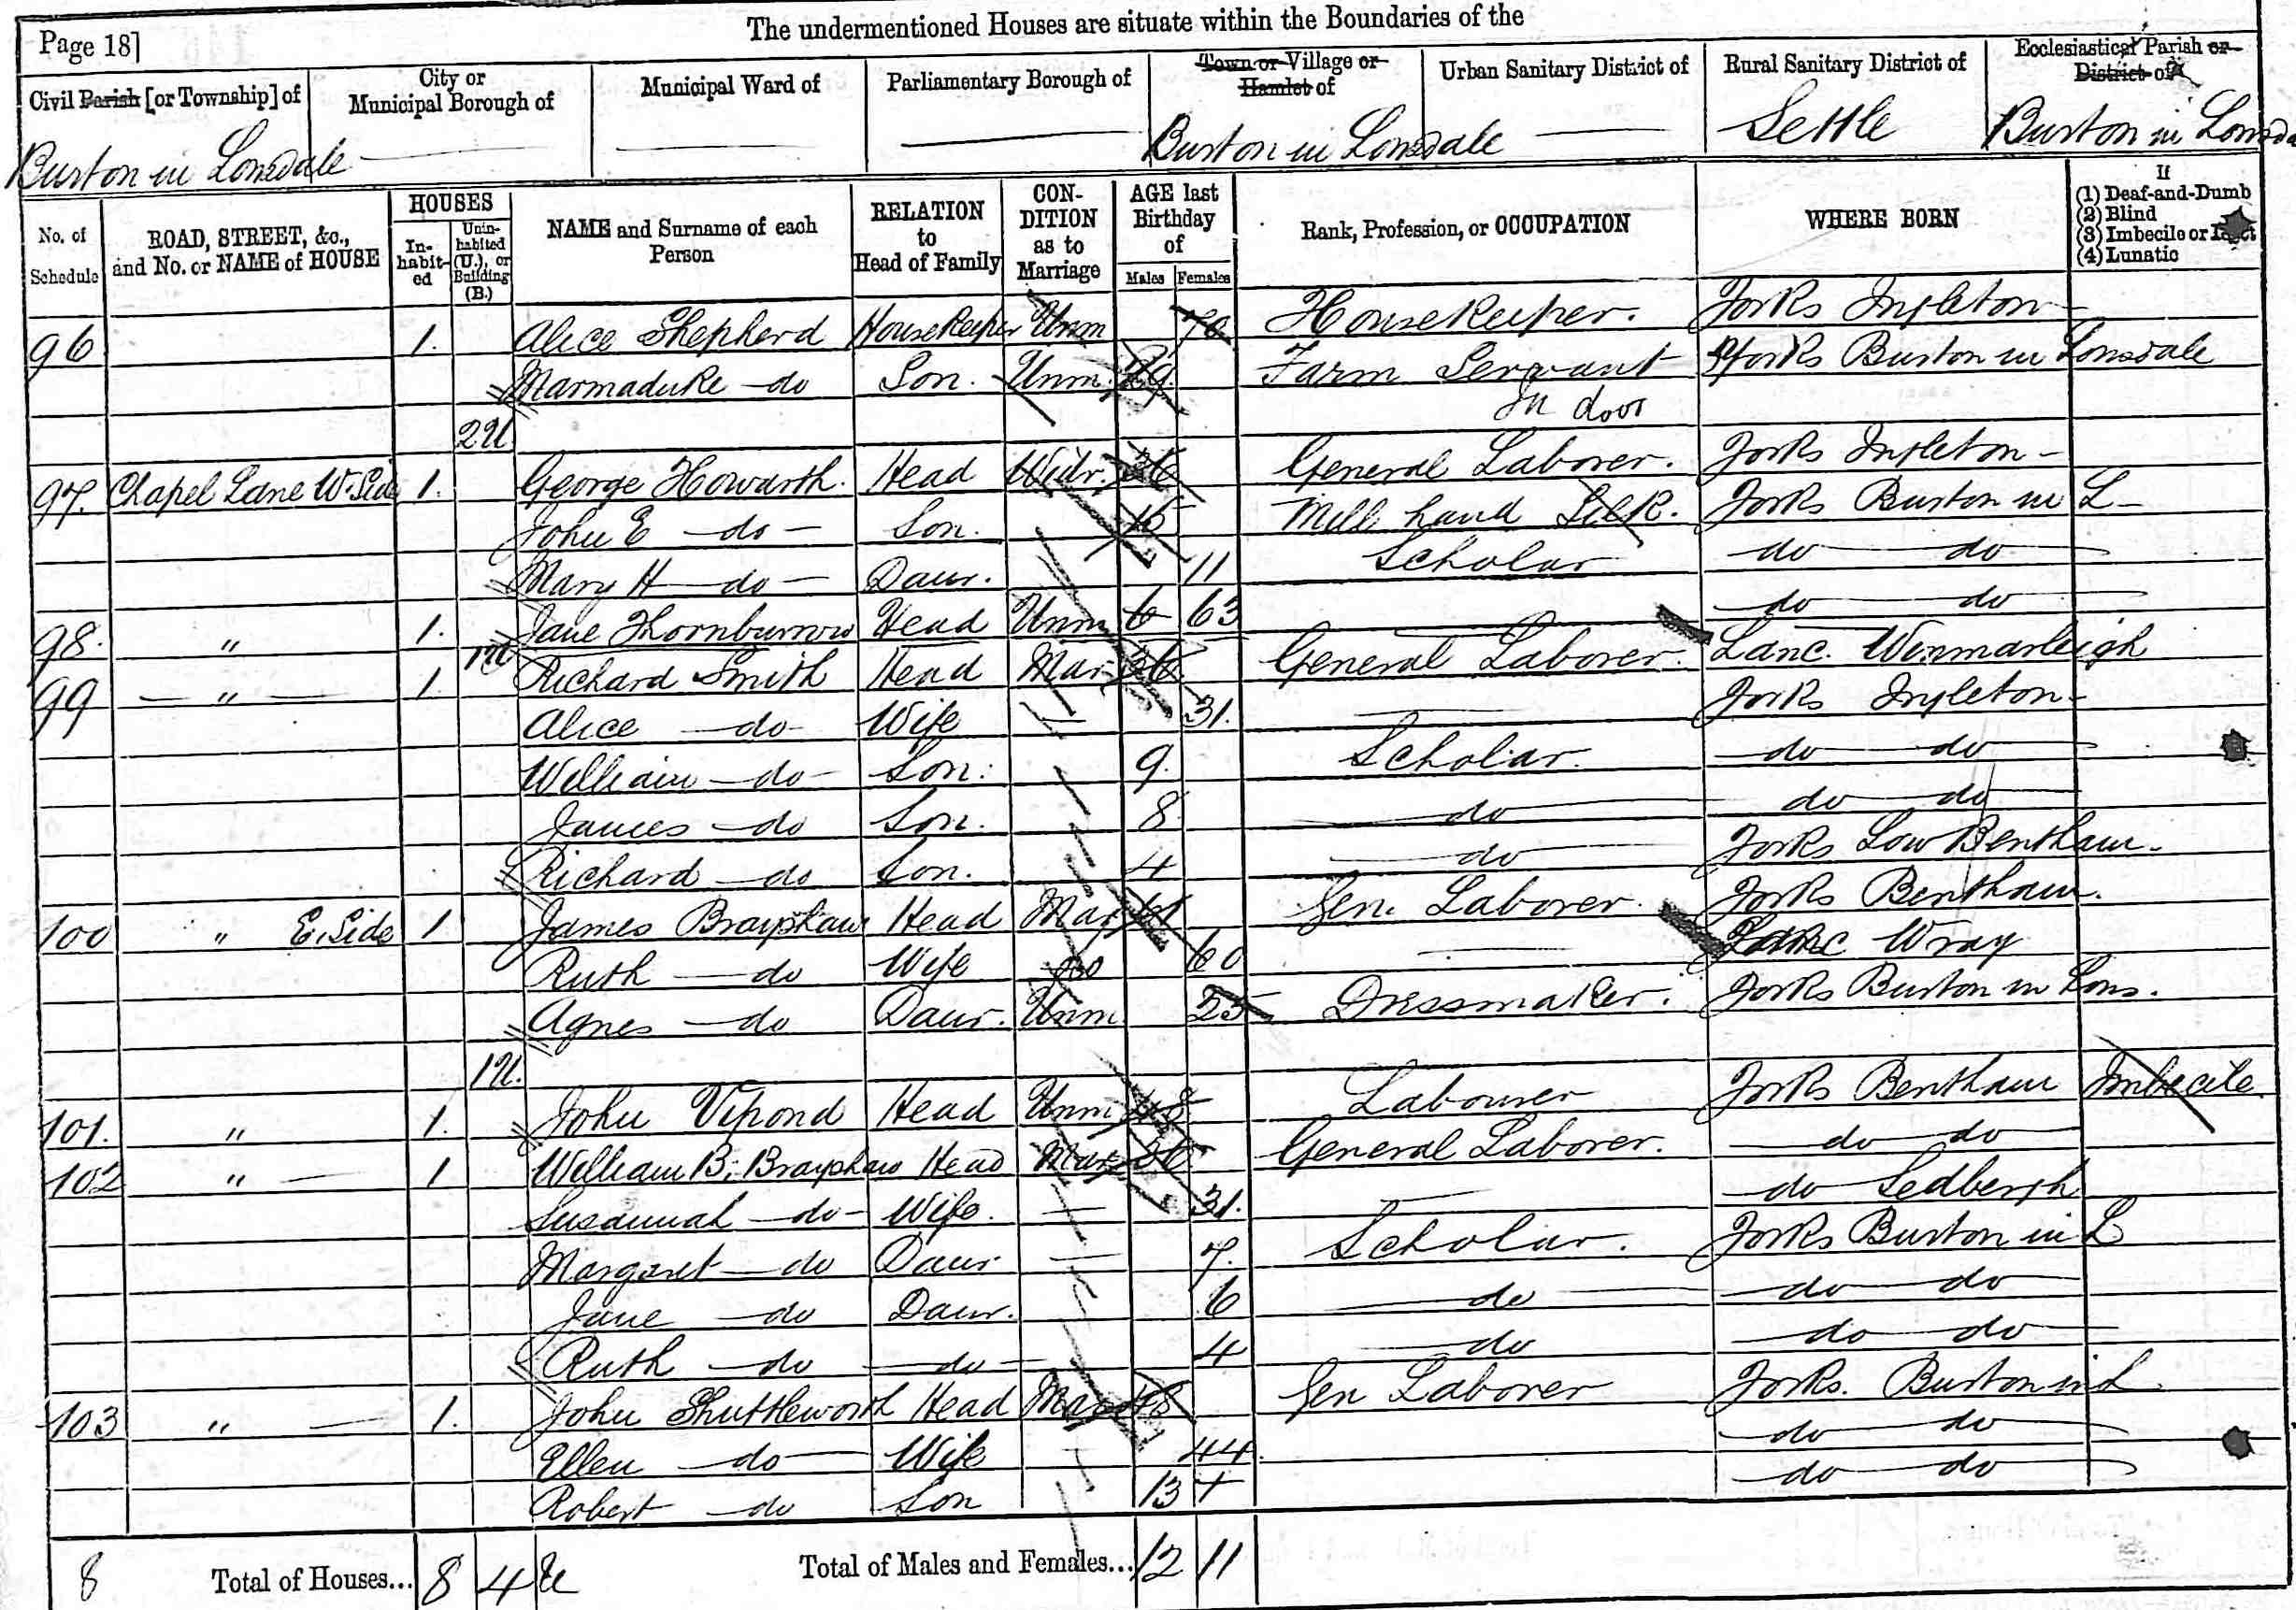 The undermentioned Houses are situate within the Boundaries of the
Page 18]
Civil Parish [or Township] of
City or Municipal Borough of
Municipal Ward of
Parliamentary Borough of
Town or Village or Hamlet of
Urban Sanitary District of
Rural Sanitary District of
Ecclesiastical Parish or District of
Burton in Lonsdale — — — Burton in Lonsdale — Settle Burton in Lonsda
No. of Schedule
ROAD, STREET, &c., and No. or NAME of HOUSE
HOUSES
In-habit-ed
Unin-habited (U.), or Building (B.)
NAME and Surname of each Person
RELATION to Head of Family
CON-DITION as to Marriage
AGE last Birthday of
Males Females
Rank, Profession, or OCCUPATION
WHERE BORN
If
(1) Deaf-and-Dumb
(2) Blind
(3) Imbecile or Idiot
(4) Lunatic
96 1. Alice Shepherd Housekeeper Unm Housekeeper. Yorks Ingleton —
Marmaduke — do Son. Unm. 29. Farm Servant Yorks Burton in Lonsdale
In door
2U
97. Chapel Lane W. Side 1. George Howarth. Head Widr. 36 General Laborer. Yorks Ingleton —
John E — do — Son. 15 Mill hand Silk. Yorks Burton in L —
Mary H — do — Daur. 11 Scholar — do — do —
98. " 1. Jane Thornburrow Head Unm 6 63 — do — do —
1U
99 — " — 1. Richard Smith Head Mar 36 General Laborer. Lanc. Winmarleigh
Alice — do — Wife — 31. — Yorks Ingleton —
William — do — Son. 9. Scholar. — do — do —
James — do Son. 8. — do — do — do
Richard — do Son. 4 — do Yorks Low Bentham.
100 " E. Side 1 James Brayshaw Head Mar 61 Gen. Laborer. Yorks Bentham.
Ruth — do Wife do 60 — Lanc Wray
Agnes — do Daur. Unm. 25 Dressmaker. Yorks Burton in Lons.
1U.
101. " 1. John Vipond Head Unm 48 Labourer Yorks Bentham Imbecile.
102 " — 1 William B. Brayshaw Head Mar 36 General Laborer. — do — do
Susannah — do — Wife. — 31. — do Sedbergh
Margaret — do Daur. — 7. Scholar. Yorks Burton in L
Jane — do Daur. 6 — do — do — do
Ruth — do — do — 4 — do — do — do
103 " — 1. John Shuttleworth Head Mar 48 Gen Laborer Yorks. Burton in L
Ellen — do — Wife — 44. — do — do
Robert — do Son 13 + — do — do
8 Total of Houses... 8 4 U Total of Males and Females... 12 11